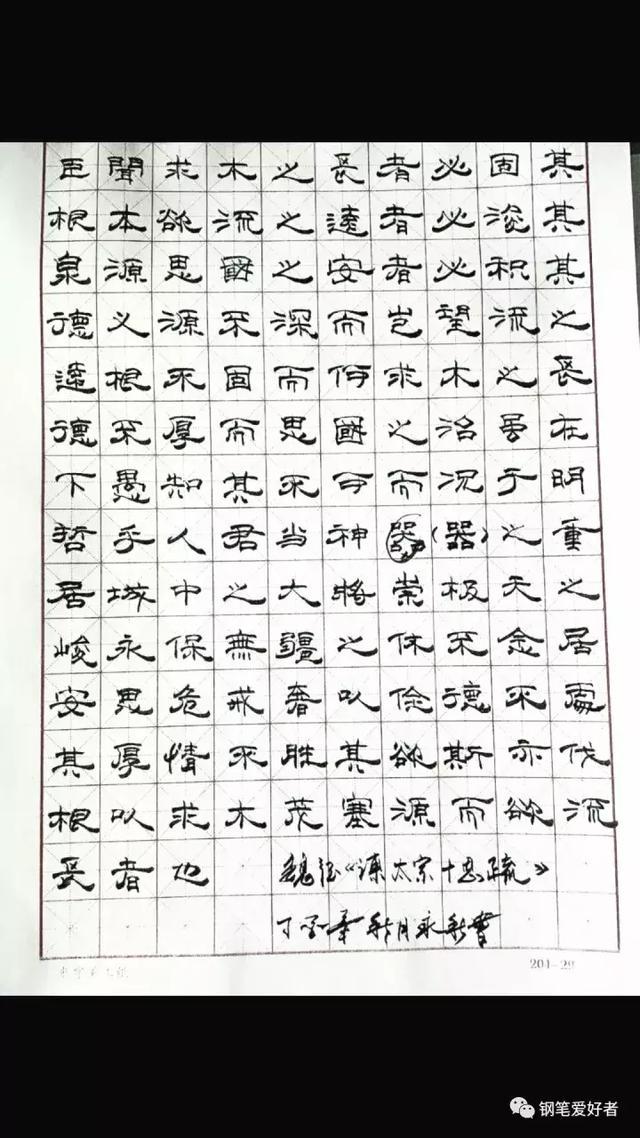 臣聞求木之長者必固其
根本欲流之遠者必浚其
泉源思國之安者必积其
德义源不深而岂望流之
遠根不固而何求木之長
德不厚而思國之治虽在
下愚知其不可而况于明
哲乎人君当神器(器)之重
居域中之大將崇极天之
峻永保無疆之休不念居
安思危戒奢以俭德不處
其厚情不胜其欲斯亦伐
根以求木茂塞源而欲流
長者也 魏征《谏太宗十思疏》
丁酉年秋月永書
201-29
钢笔爱好者